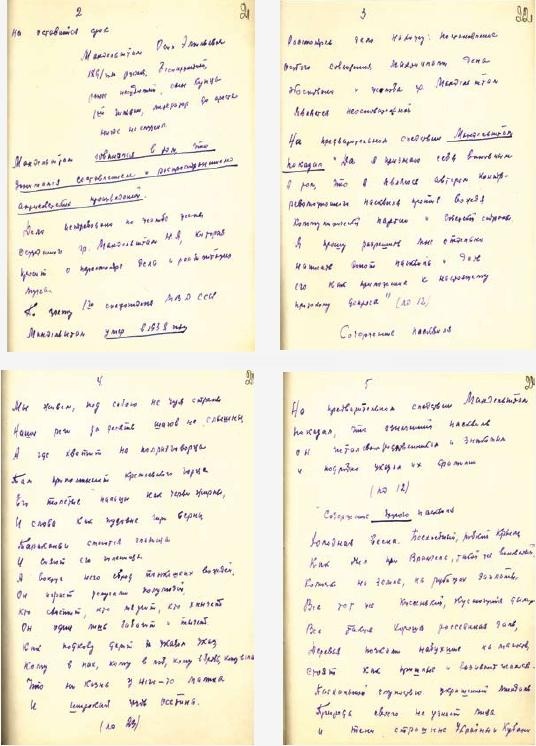 2
на оставшийся срок
Мандельштам Осип Эмильевич
1891 г. рожд., беспартийный,
ранее несудимый, сын купца
1ой гильдии, литератор до ареста
нигде не служил.
Мандельштам сознался в том, что
занимался составлением и распространением
а/советских произведений.
Дело истребовано по жалобе жены
осужденного гр. Мандельштам Н.Я., которая
просит о пересмотре дела и реабилитации
мужа.
По учету 1го спецотдела МВД СССР
Мандельштам умер в 1938 году
3
22
Рассмотрев дело нахожу: постановление
особого совещания
и жалоба гр. Мандельштам
является неосновательной
На предварительном следствии Мандельштам
показал "Да я признаю себя виновным
в том, что я являюсь автором контр-
революционного пасквиля против вождя
коммунистической партии и советской страны.
Я прошу разрешить мне отдельно
написать этот пасквиль и дать
его как приложение к настоящему
протоколу допроса" (лд 12)
Содержание пасквиля
4
Мы живем, под собою не чуя страны
Наши речи за десять шагов не слышны,
А где хватит на полразговорца
Там припоминают кремлевского горца
Его толстые пальцы как черви жирны,
И слова как пудовые гири верны
Тараканьи смеются глазища
И сияют его голенища
А вокруг него сброд тонкошеих вождей,
Он играет услугами полулюдей,
Кто свистит, кто мяучит, кто хнычет
Он один лишь бабачит и тычет
Как подкову дарит за указом указ
Кому в пах, кому в лоб, кому в бровь, кому в глаз
Что ни казнь у него-то малина
И широкая грудь осетина.
(лд 23)
5
На предварительном следствии Мандельштам
показал, что означенный пасквиль
он читал своим родственникам и знакомым
и подробно указал их фамилии
(лд 12)
Содержание другого пасквиля
Холодная весна. Бесхлебный, робкий Крым
Как был при Врангеле, такой же виноватый,
Колючки на земле, на рубищах заплаты,
Все тот же кисленький, кусающийся дым.
Все также хороша рассеянная даль,
Деревья почками набухшие на малость,
стоят как пришлые и вызывает жалость
Пасхальной глупостью украшенный миндаль
Природа своего не узнает лица
и тени страшные Украины и Кубани